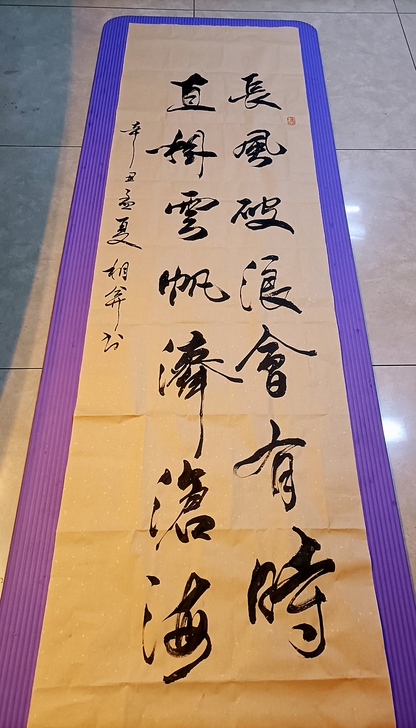 長風破浪會有時
直掛雲帆濟滄海
辛丑孟夏 相弇书